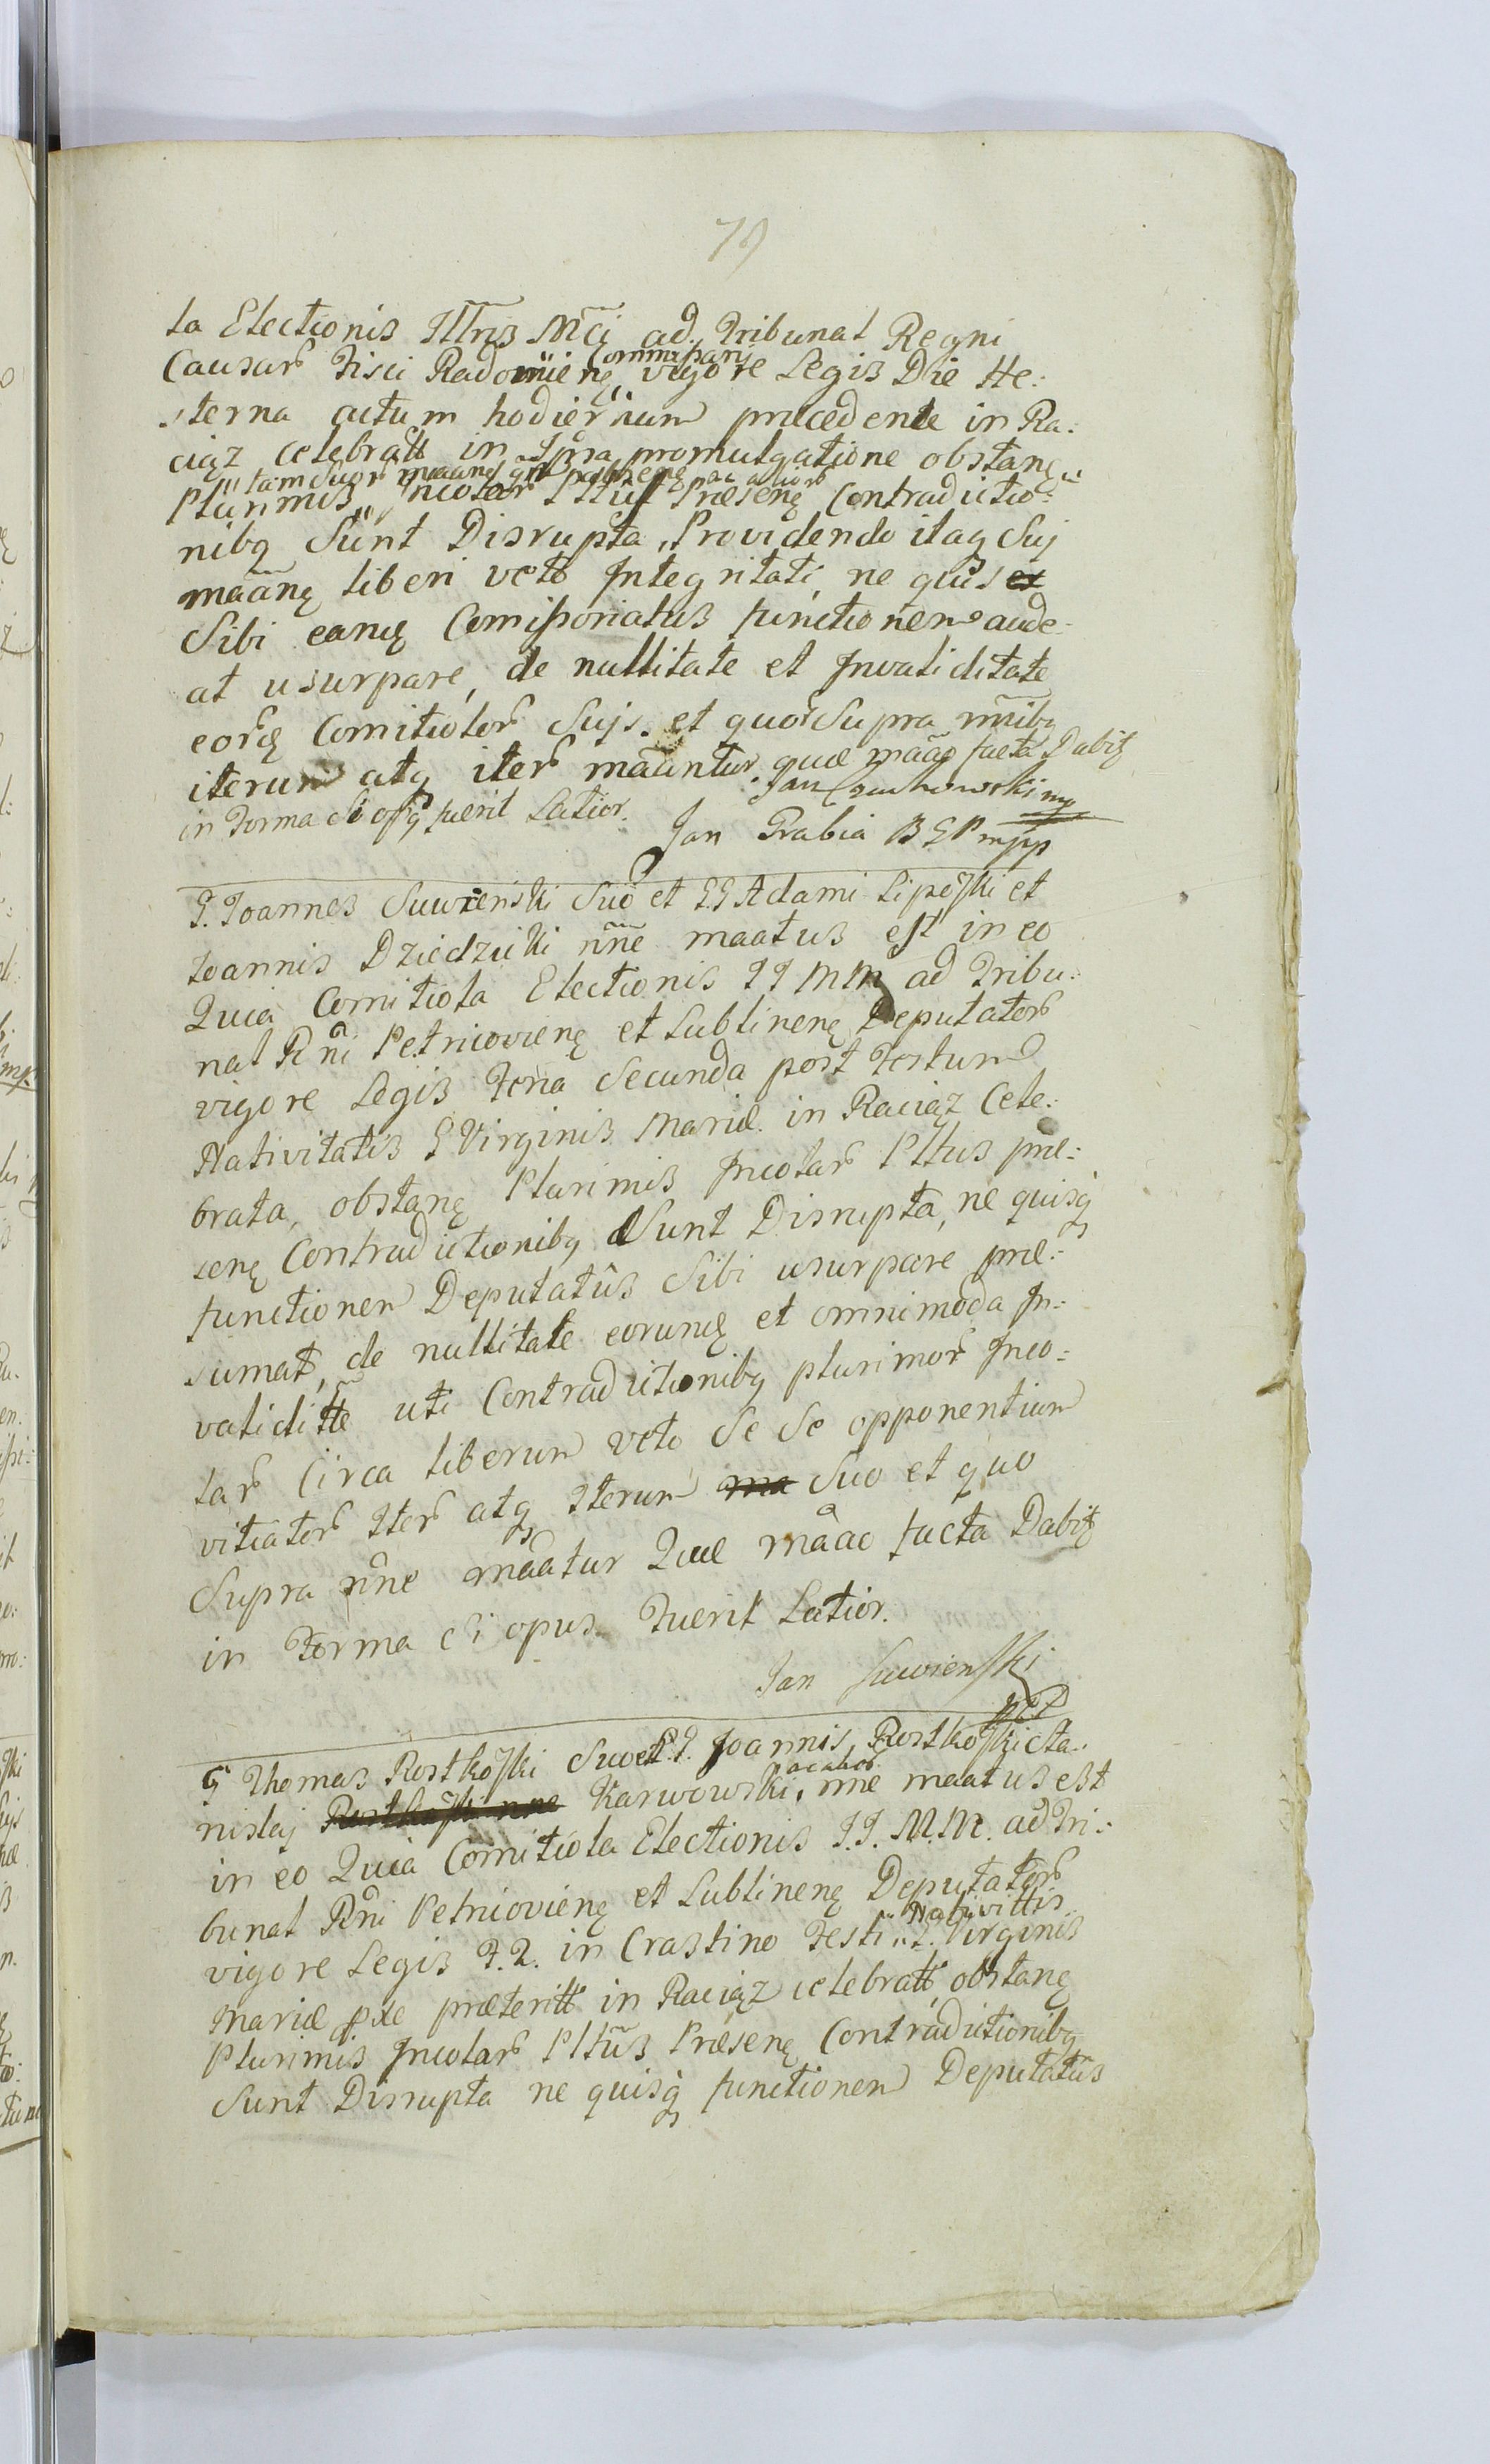 79
la Electionis Illris Mci ad Tribunal Regni
Causar Fisci Radomienę Commissarij vigore Legis Die He:
sterna actum hodiernum præcedente in Ra:
ciąz celebratt in Ipsa promulgatione obstanę
tam Suor maanę ac alior
Plurimis Incolar Pltus Præsenę Contradictio:
nibq Sunt Disrupta, Providendo itaq Suj
maanę liberi veto Integritati, ne quis
Sibi eanę Comissoriatus functionem aude:
at usurpare, de nullitate et Invaliditate
eorę Comitiolor Sujs. et quor Supra nnibq
iterum atq iter maantur. quæ maao facta Dabit
in Forma Si opq fuerit Latior.
Jan Czachowski mp
Jan Grabia BGP mpp
G. Joannes Suwienski Suo et GG Adami Liposki et
Joannis Dziedzicki nne maatus est in eo
Quia Comitiola Electionis II MM ad Tribu:
nal Rni Petricovienę et Lublinenę Deputator
vigore Legis Feria Secunda post Festum
Nativitatis S Virginis Mariæ in Raciąz Cele:
brata, obstanę Plurimis Incolar Pltus præ:
senę Contradictionibq Sunt Disrupta, ne quisq
functionem Deputatus Sibi usurpare præ:
sumat, de nullitate eorunę et omnimoda In:
validitte uti Contradictionibq plurimor Inco:
lar Circa liberum veto Se Se opponentium
vitiator Iter atq Iterum ma Suo et quo
Supra nne maatur Quæ maao facta Dabit
in Forma Si opus Fuerit Latior.
Jan Suwienski
G Thomas Rostkoski Suo et G.G. Joannis Rostkoski Sta:
nislaj Rostkoski nne Karwowski, ac alior nne maatus est
in eo Quia Comitiola Electionis I.I. M.M. ad Tri:
bunal Rni Petriovienę et Lublinenę Deputator
vigore Legis F.2. in Crastino Festi Nativittis S. Virginis
Mariæ pxe præteritt in Raciąz celebratt obstanę
Plurimis Incolar Pltus Præsenę Contradictionibq
Sunt Disrupta ne quisq functionem Deputatus